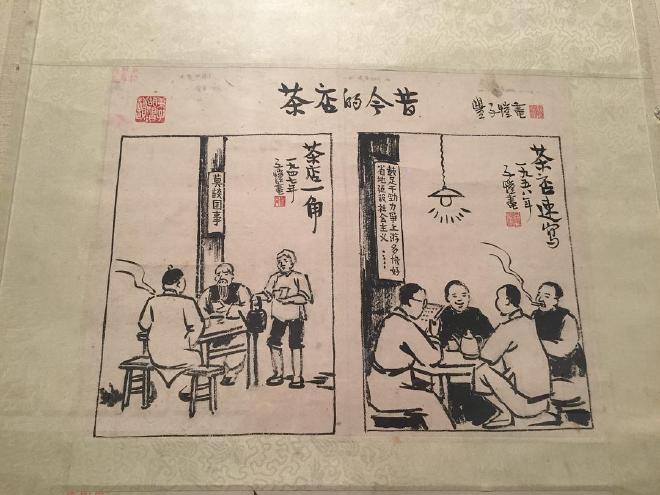 茶店的今昔
豐子愷畫
茶店一角
一九四七年
子愷畫
莫談国事
茶店速寫
一九五八年
子愷畫
鼓足干劲力爭上游多快好
省地建設社会主义……